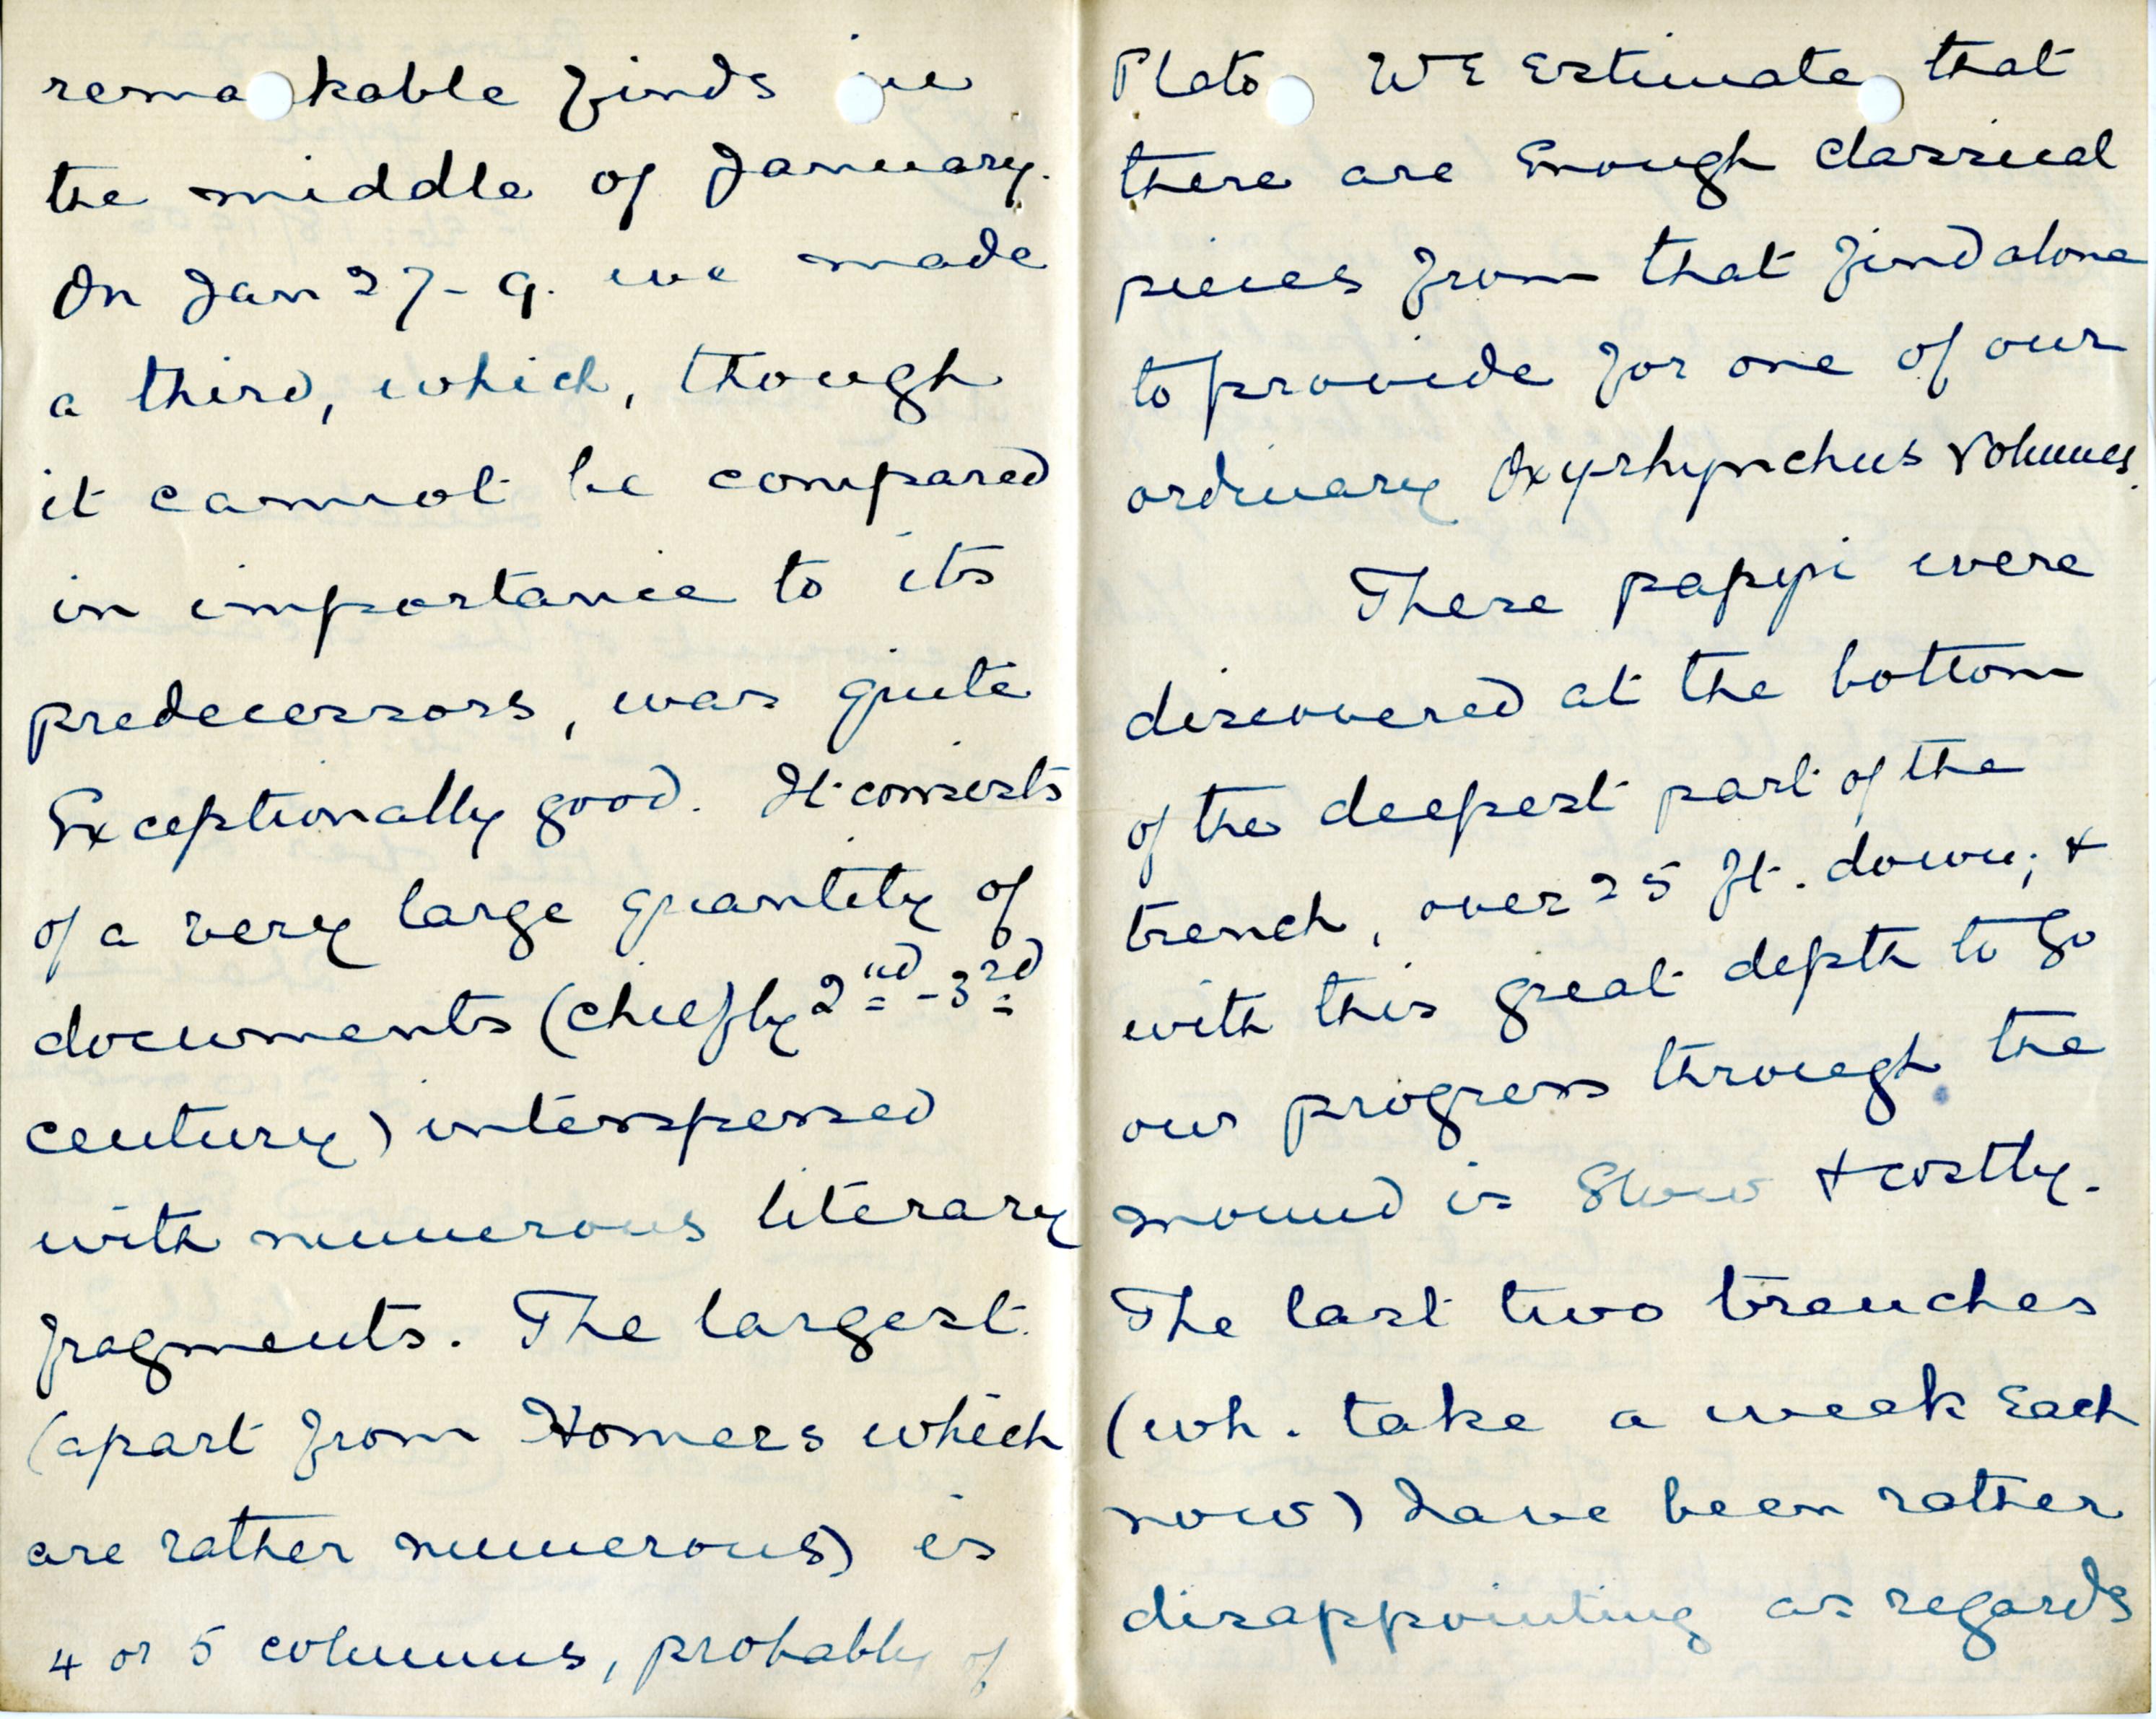 remarkable finds in
the middle of January.
On Jan 27-9. we made
a third, which, though
it cannot be compared
in importance to its
predecessors, was quite
Exceptionally good. It consists
of a very large quantity of
documents (chiefly 2nd - 3rd
century) interspersed
with numerous literary
fragments. The largest
(apart from Homers which
are rather numerous) is
4 or 5 columns, probably of
Plato. We Estimate that
there are Enough classical
pieces from that find alone
to provide for one of our
ordinary Oxyrhynchus volumes.
These papyri were
discovered at the bottom
of the deepest part of the
trench, over 25 ft. down; &
with this great depth to go
our progress through the
mound is slow & costly.
The last two trenches
(wh. take a week Each
now) have been rather
disappointing as regards